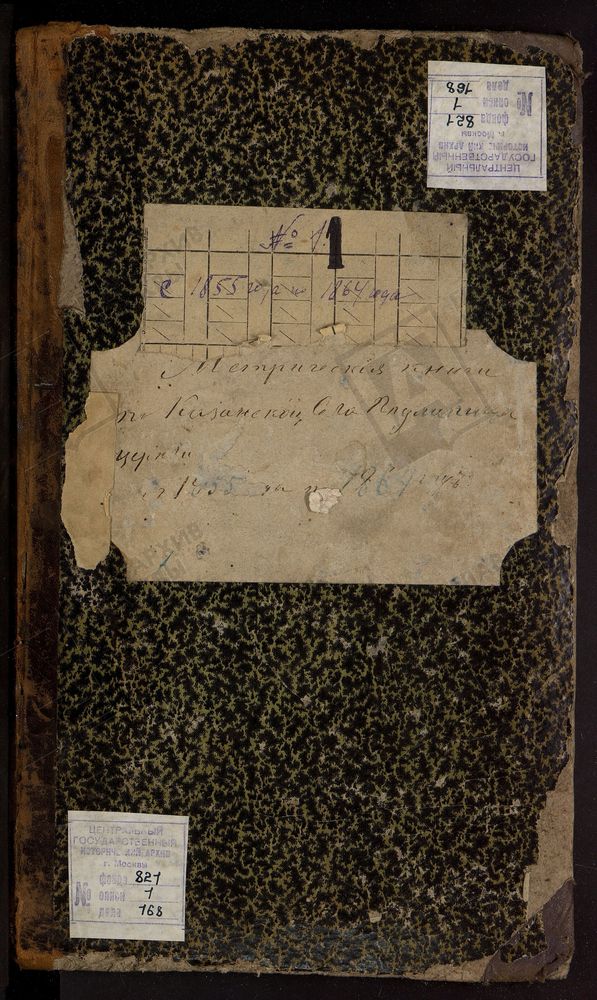 ЦЕНТРАЛЬНЫЙ
ГОСУДАРСТВЕННЫЙ
ИСТОРИЧ КИЙ АРХИВ
г. Москвы
фонда 821
№ описи 1
дела 168
№ 1
с 1855 го 1864 года
Метрическія книги
по Казанской
церкви
1855 1864
ЦЕНТРАЛЬНЫЙ
ГОСУДАРСТВЕННЫЙ
ИСТОРИЧ КИЙ АРХИВ
г. Москвы
фонда 821
№ описи 1
дела 168